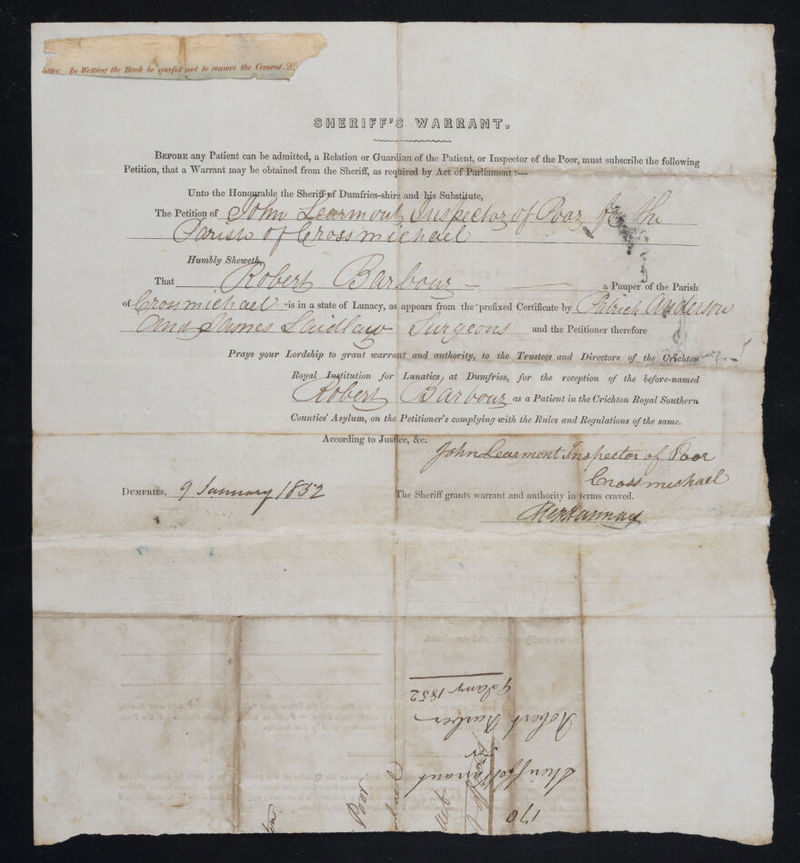 In Wetting the Back be careful not to remove the Cement. 25
SHERIFF'S WARRANT.
BEFORE any Patient can be admitted, a Relation or Guardian of the Patient, or Inspector of the Poor, must subscribe the following
Petition, that a Warrant may be obtained from the Sheriff, as required by Act of Parliament :—
Unto the Honourable the Sheriff of Dumfries-shire and his Substitute,
The Petition of John Learmont Inspector of Poor for the
Parish of Crossmichael
Humbly Sheweth,
That Robert Barbour a Pauper of the Parish
of Crossmichael is in a state of Lunacy, as appears from the prefixed Certificate by Patrick Anderson
and James Laidlaw Surgeons and the Petitioner therefore
Prays your Lordship to grant warrant and authority, to the Trustees and Directors of the Crichton
Royal Institution for Lunatics, at Dumfries, for the reception of the before-named
Robert Barbour as a Patient in the Crichton Royal Southern
Counties' Asylum, on the Petitioner's complying with the Rules and Regulations of the same.
According to Justice, &c.
John Learmont Inspector of Poor
Crossmichael
DUMFRIES, 9 January 1852
The Sheriff grants warrant and authority in terms craved.
170
Sheriff's Warrant
for
Robert Barber
9 Jany 1852
Poor